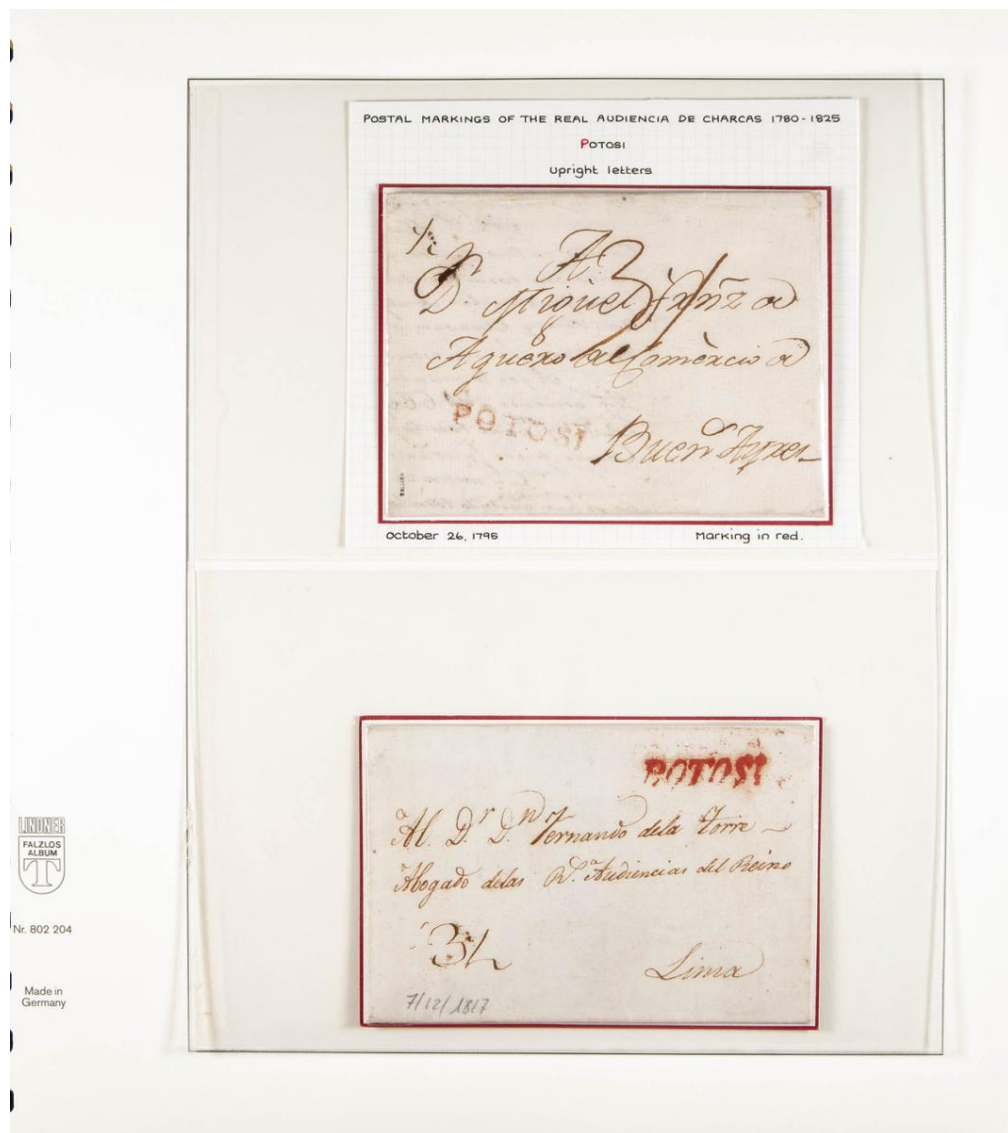 POSTAL MARKINGS OF THE REAL AUDIENCIA DE CHARCAS 1780-1825
POTOSI
upright letters
A
Dn Miguel de
Aguero del Comercio de
POTOSI
Buens Ayres
October 26, 1795
Marking in red.
POTOSI
Al Dr. Dn. Fernando dela Torre
Abogado delas Rs. Audiencias del Reino
Lima
7/12/1817
LINDNER
FALZLOS
ALBUM
T
Nr. 802 204
Made in
Germany